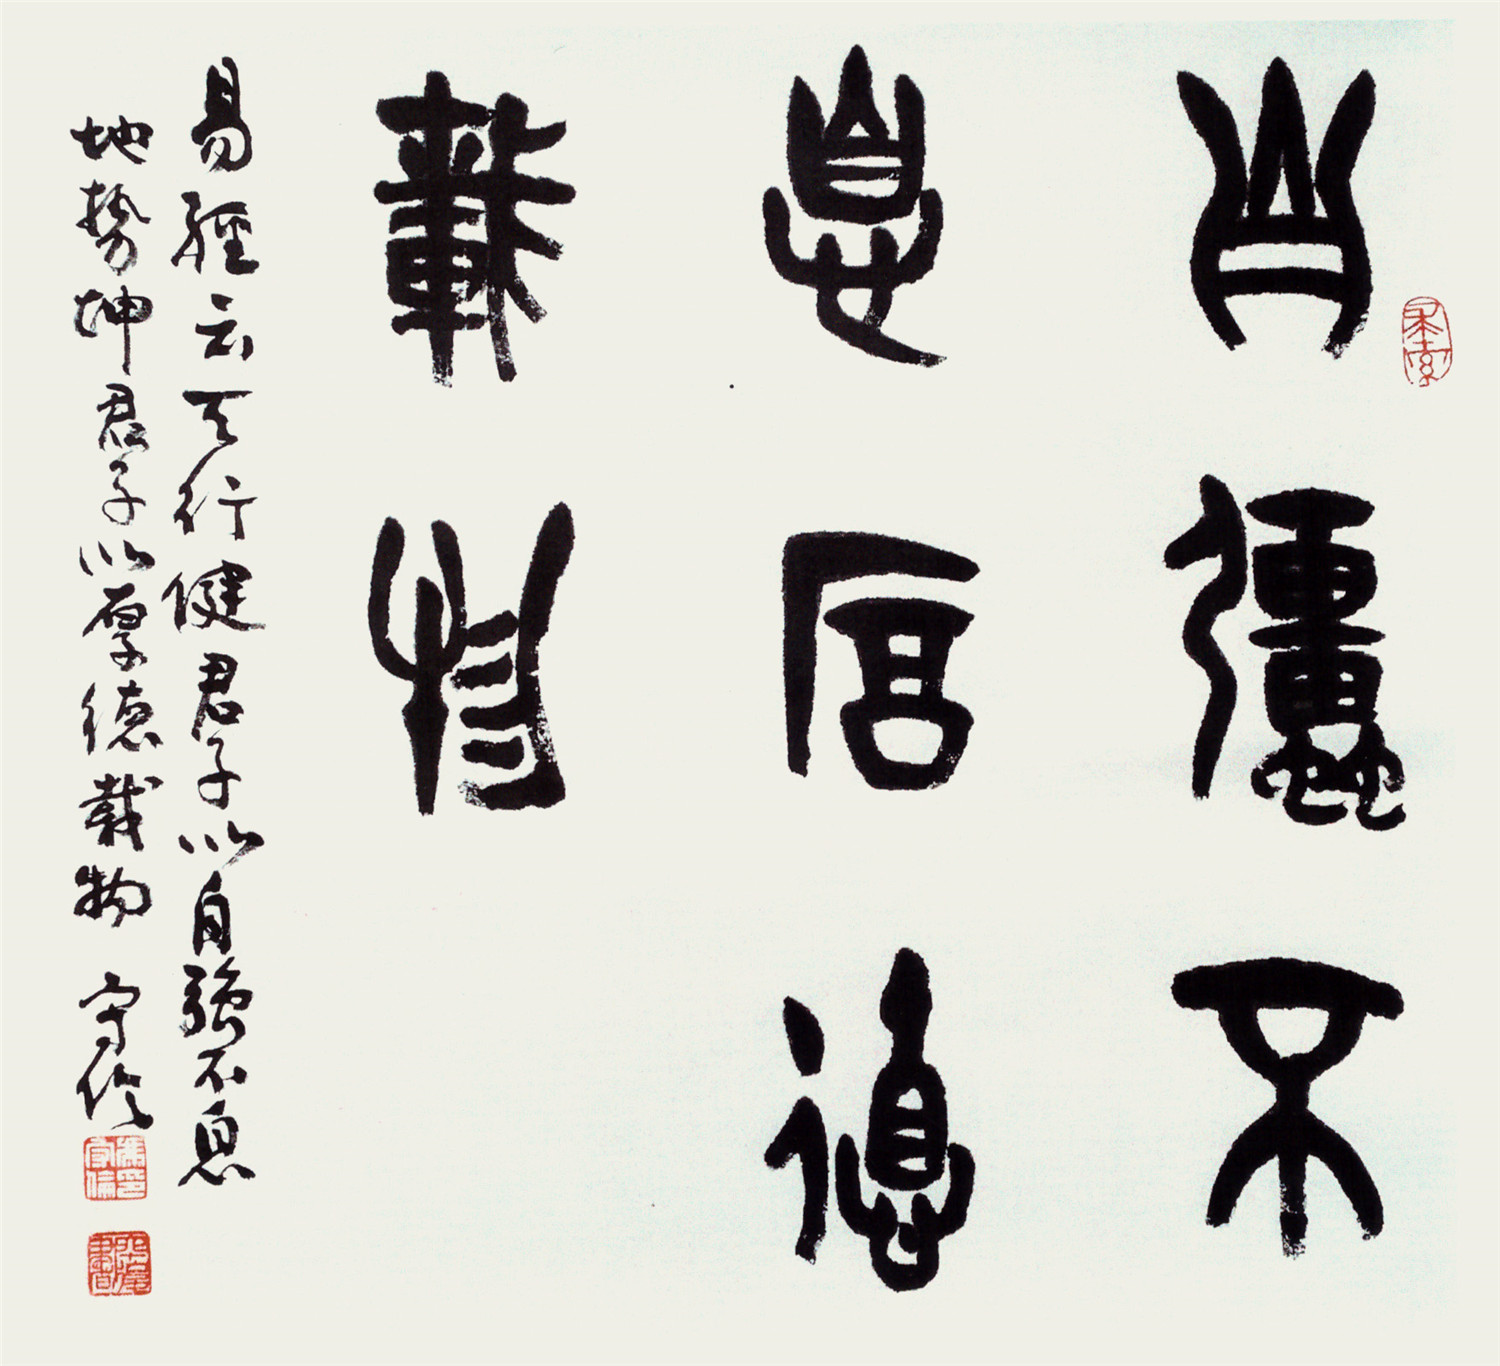 自彊不
息厚德
載物
易經云天行健君子以自強不息
地勢坤君子以厚德載物 守